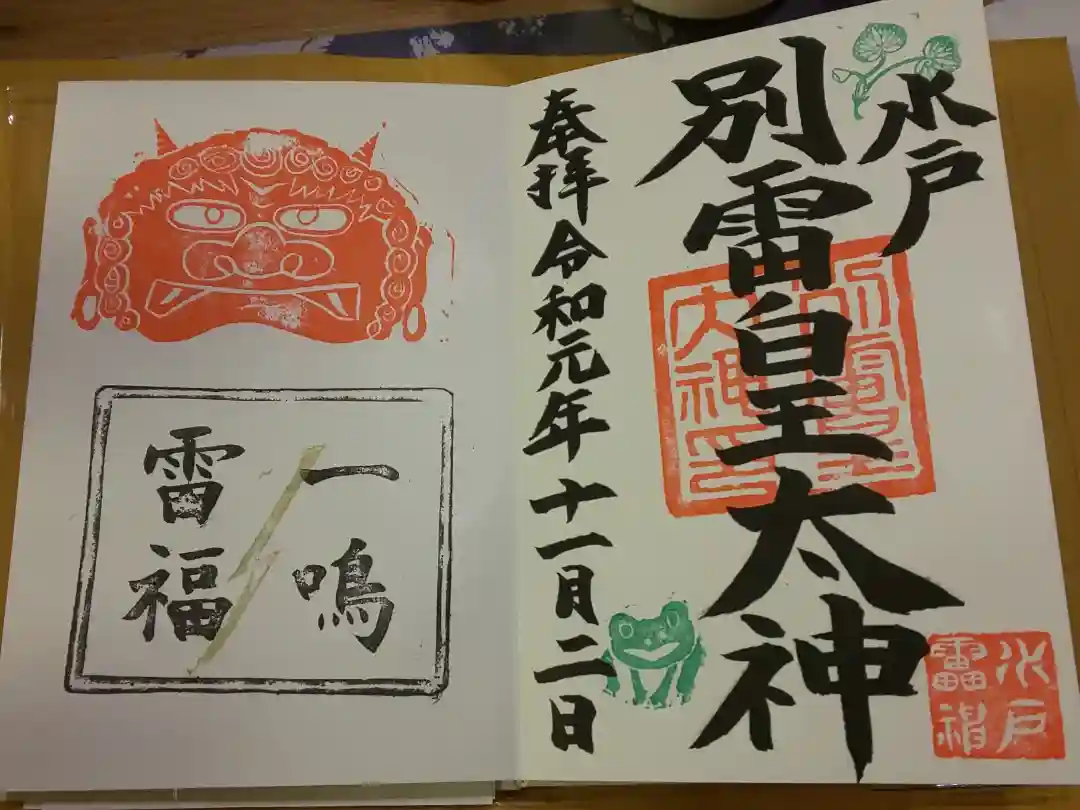 水戸
別雷皇太神
奉拝 令和元年 十一月二日
水戸
雷神
一鳴
雷福